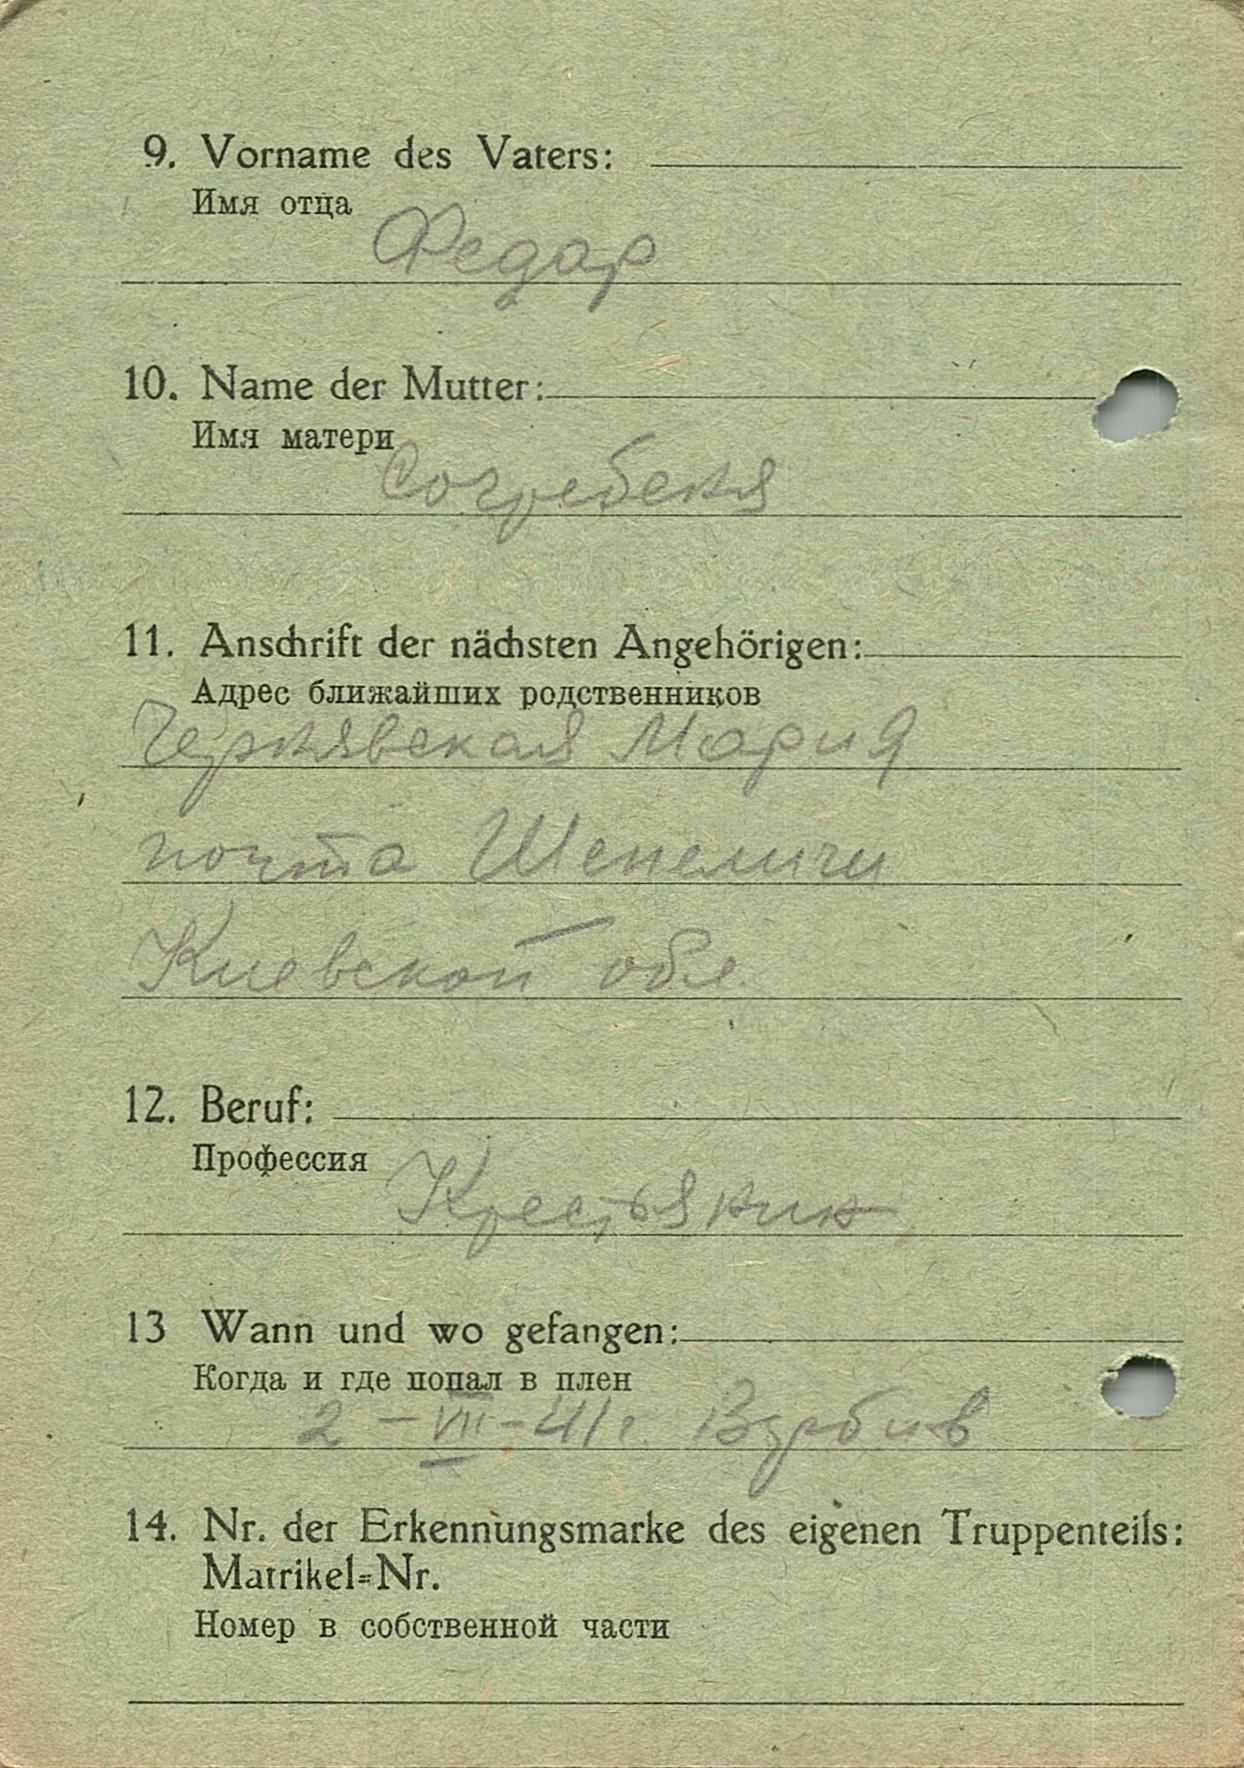 9. Vorname des Vaters:
Имя отца
Федар
10. Name der Mutter:
Имя матери
Согребеня
11. Anschrift der nächsten Angehörigen:
Адрес ближайших родственников
Чернявская Мария
почта Шепеличи
Киевской обл.
12. Beruf:
Профессия
Крестьянин
13 Wann und wo gefangen:
Когда и где попал в плен
2-VII-41г.
14. Nr. der Erkennungsmarke des eigenen Truppenteils:
Matrikel=Nr.
Номер в собственной части